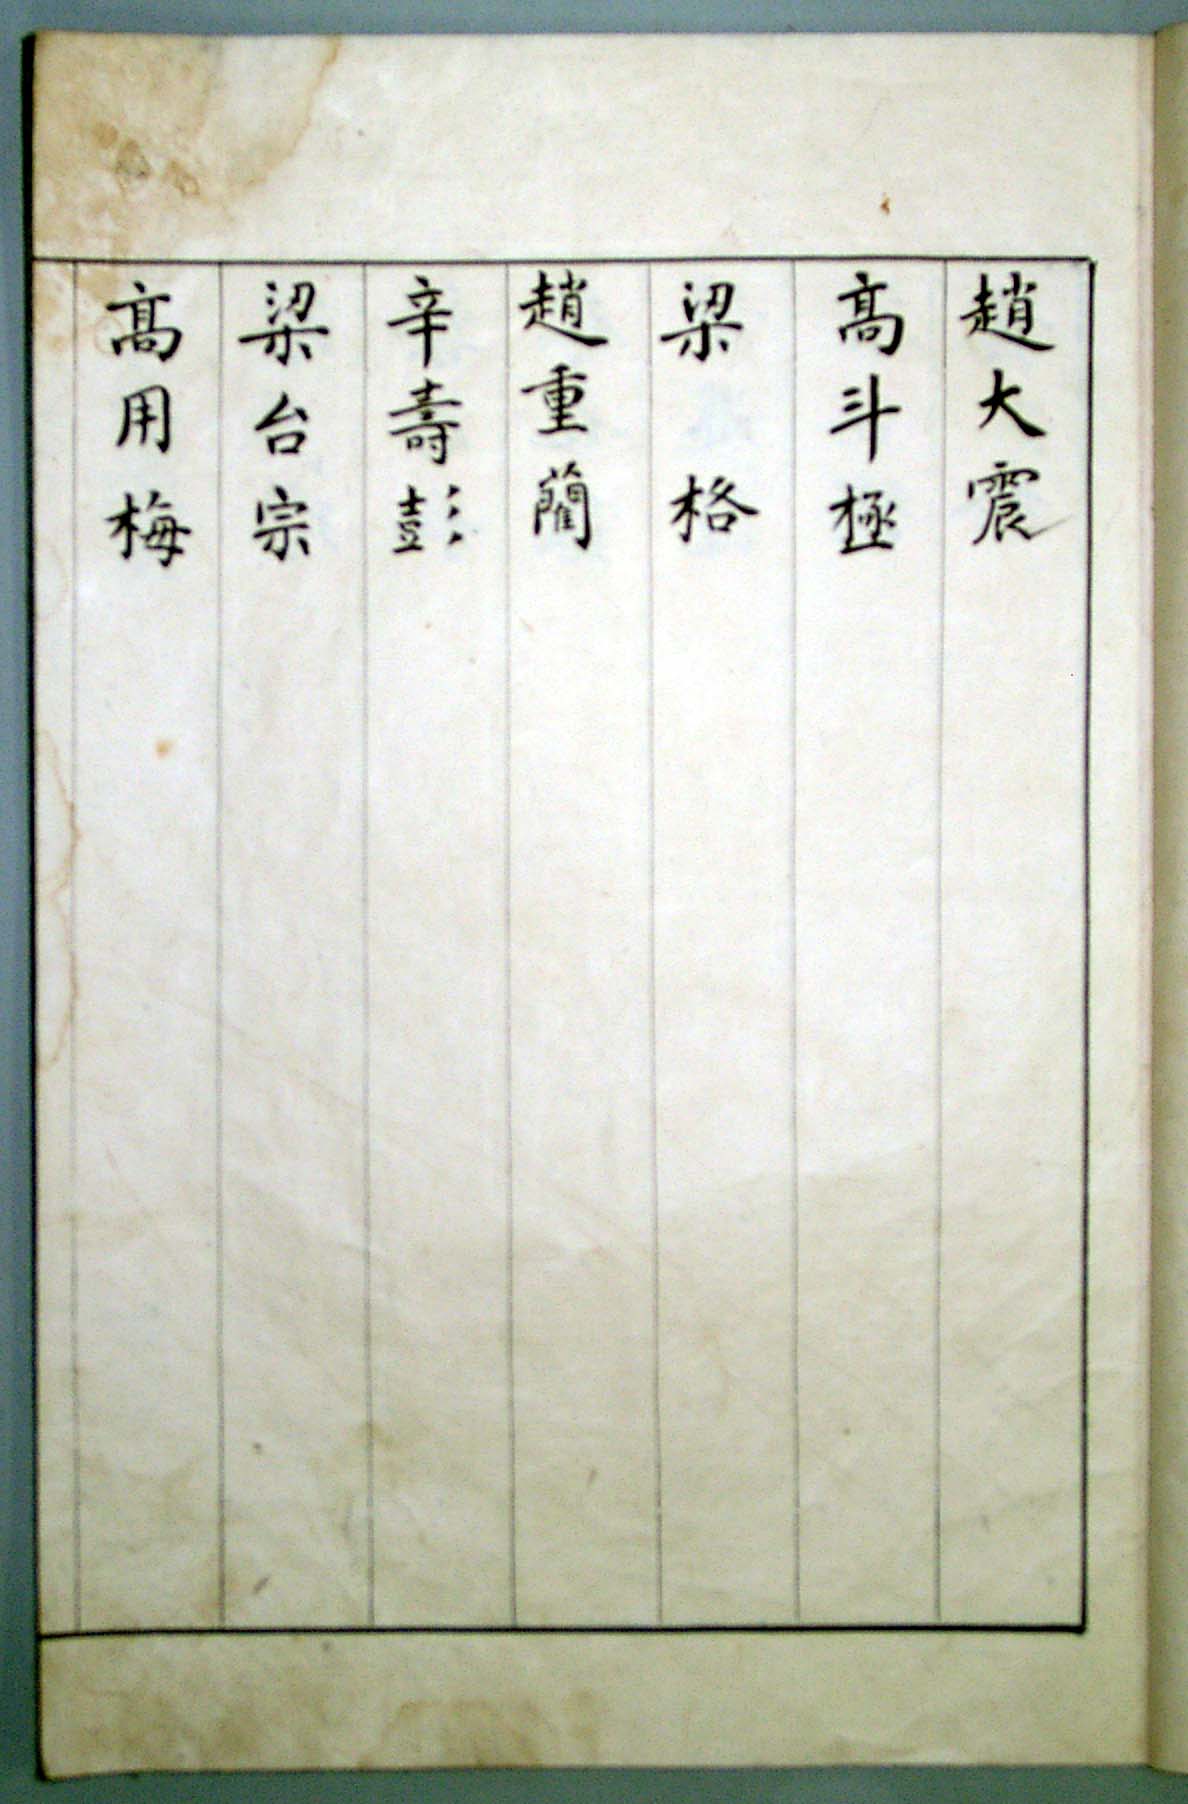 趙大震
髙斗極
梁格
趙重藺
辛壽彭
梁台宗
髙用梅